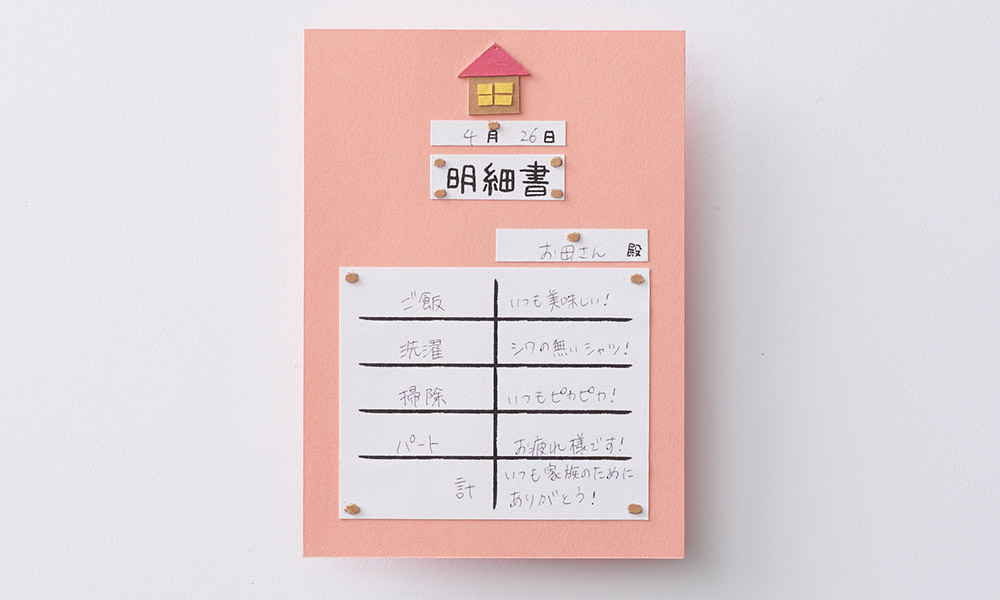 4月 26日
明細書
お母さん 殿
ご飯 いつも美味しい!
洗濯 シワの無いシャツ!
掃除 いつもピカピカ!
パート お疲れ様です!
計 いつも家族のために
ありがとう!